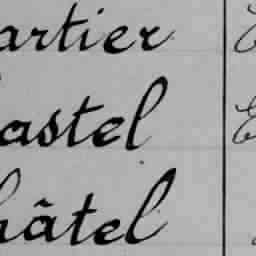 artier
astel
hâtel